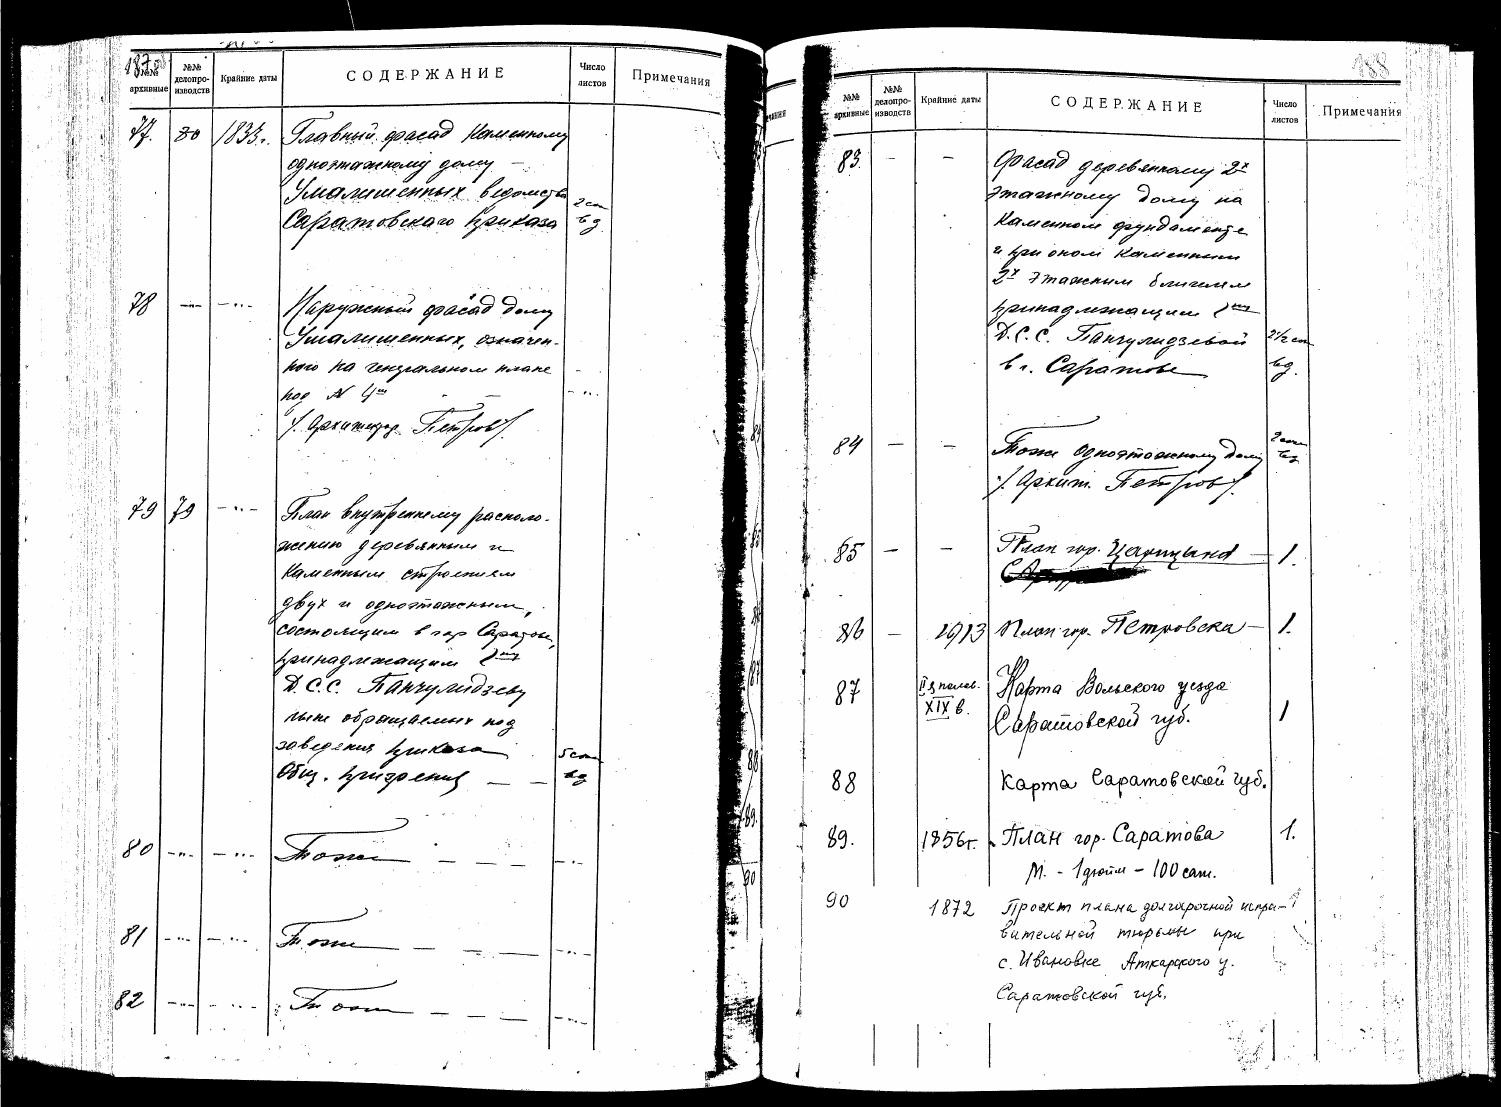 187
№№ архивные
№№ делопро-изводств
Крайние даты
СОДЕРЖАНИЕ
Число листов
Примечания
77. 80 1833г. Главный фасад каменному
одноэтажному дому —
Умалишенных ведомства
Саратовского приказа
78 —„— —„— Наружный фасад дому
Умалишенных, означен-
ного на генеральном плане
под № 4м
/. Архитектор. Петров/.
79 79 —„— План внутреннему располо-
жению деревянным и
каменным строениям
двух и одноэтажным,
состоящим в гор Саратове,
принадлежащим
Д.С.С. Панчулидзеву
ныне обращаемых под
заведения приказа
Общ. призрения — —
80 —„— —„— Тоже — — — —„—
81 —„— —„— Тоже — — — —„—
82 —„— —„— Тоже — — — —„—
188
№№ архивные
№№ делопро-изводств
Крайние даты
СОДЕРЖАНИЕ
Число листов
Примечания
83 — — Фасад деревянному 2х
этажному дому на
каменном фундаменте
и при оном каменным
2х этажным
принадлежащим
Д.С.С. Панчулидзевой
в г. Саратове
84 — — Тоже одноэтажному дому
/. Архит. Петров/.
85 — — План гор. Царицына — 1.
86 — 1913 План гор. Петровска — 1.
87 II я полов. Карта Вольского уезда
XIX в. Саратовской губ. 1
88 Карта Саратовской губ.
89. 1856г. План гор. Саратова 1.
М. - 1 дюйм - 100 саж.
90 1872 Проект плана долгосрочной испра- 1
вительной тюрьмы при
с. Ивановке Аткарского у.
Саратовской губ.